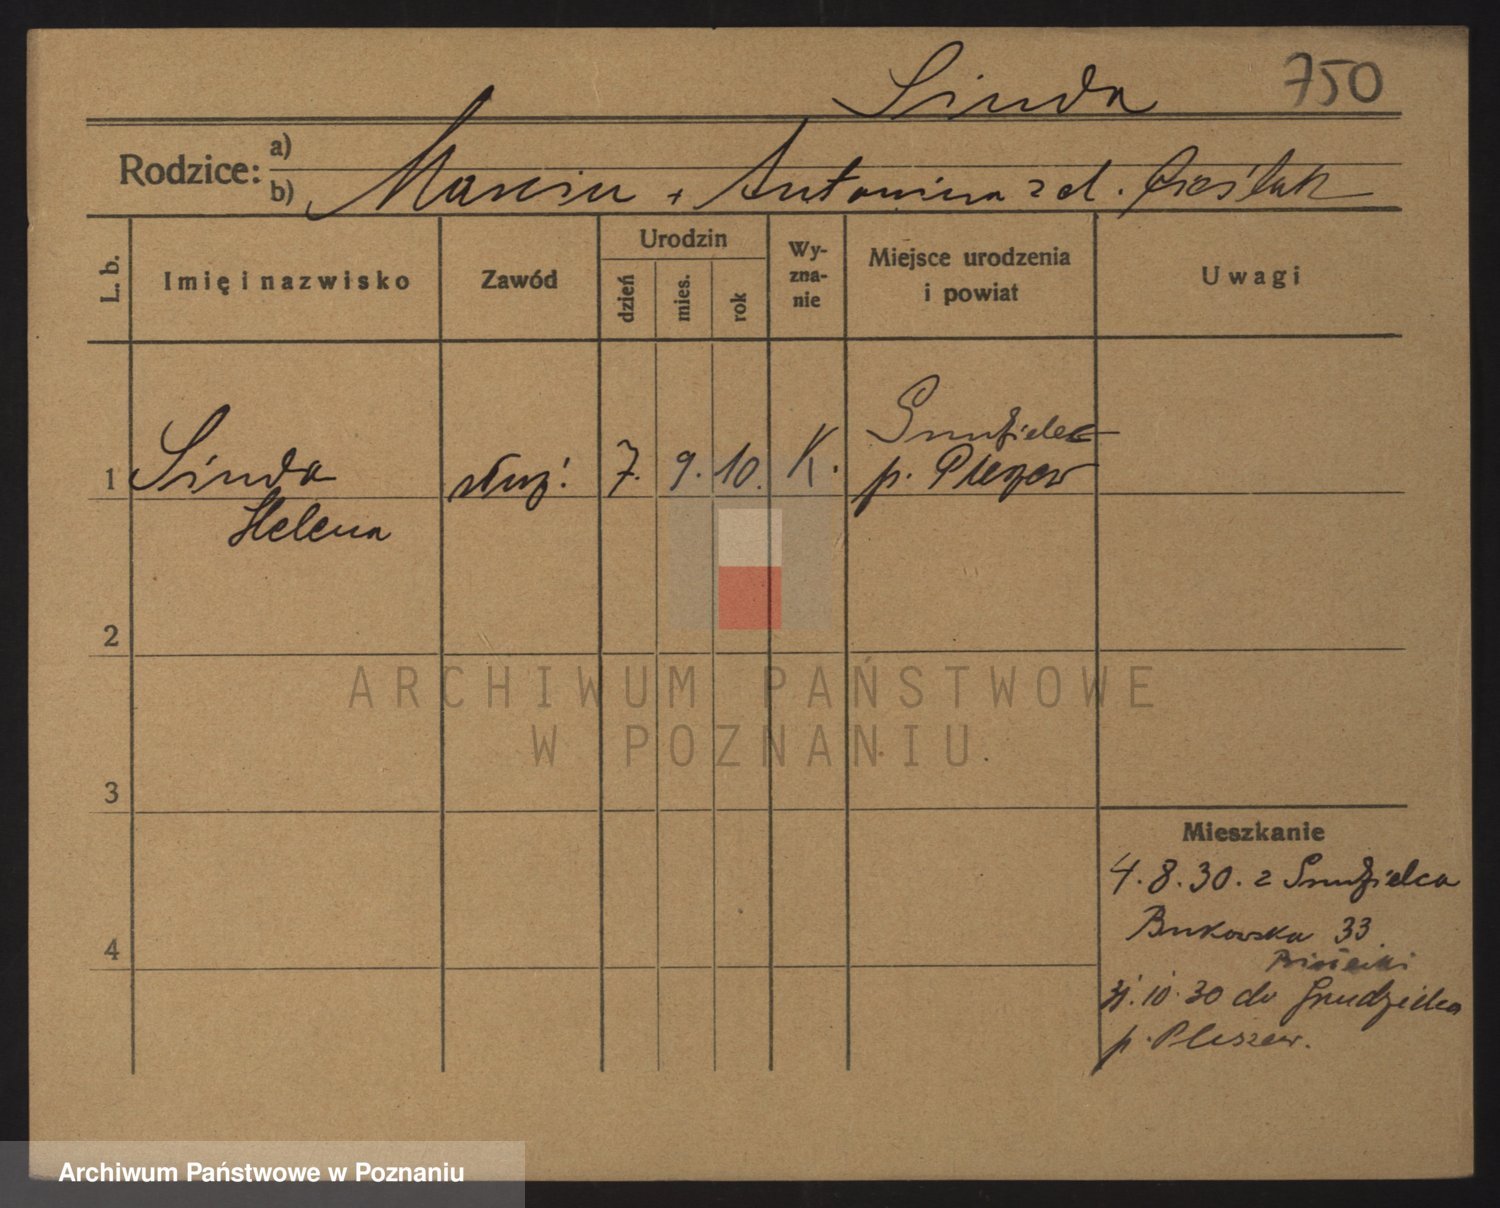 Sinda 750
Rodzice: a)
b) Marcin + Antonina z d. Cieślak
L. b. Imię i nazwisko Zawód Urodzin dzień mies. rok Wyznanie Miejsce urodzenia i powiat Uwagi
1 Sinda służ. 7. 9. 10. K. Grudzielec
Helena p. Pleszew
2
3
4
Mieszkanie
4.8.30. z Grudzielca
Bukowska 33
31.10.30 do Grudzielca
p. Pleszew.
ARCHIWUM PAŃSTWOWE
W POZNANIU
Archiwum Państwowe w Poznaniu